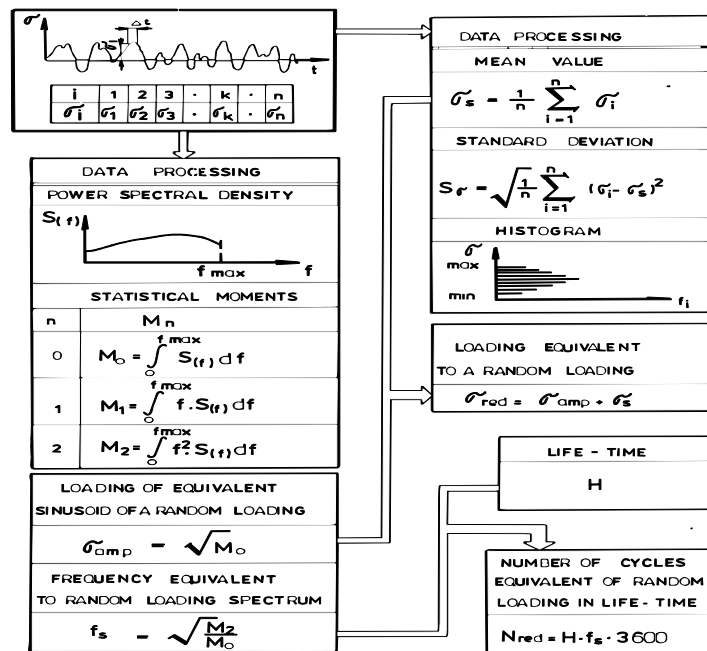 σ
Δ t
σi
t
i 1 2 3 · k · n
σi σ1 σ2 σ3 · σk · σn
DATA PROCESSING
POWER SPECTRAL DENSITY
S(f)
f max f
STATISTICAL MOMENTS
n Mn
0 M₀ = ∫₀^fmax S(f) df
1 M₁ = ∫₀^fmax f.S(f) df
2 M₂ = ∫₀^fmax f².S(f) df
LOADING OF EQUIVALENT
SINUSOID OF A RANDOM LOADING
σamp = √M₀
FREQUENCY EQUIVALENT
TO RANDOM LOADING SPECTRUM
fs = √(M₂/M₀)
DATA PROCESSING
MEAN VALUE
σs = 1/n ∑_{i=1}^{n} σi
STANDARD DEVIATION
Sσ = √(1/n) ∑_{i=1}^{n} (σi - σs)²
HISTOGRAM
σ
max
min
fi
LOADING EQUIVALENT
TO A RANDOM LOADING
σred = σamp + σs
LIFE - TIME
H
NUMBER OF CYCLES
EQUIVALENT OF RANDOM
LOADING IN LIFE - TIME
Nred = H · fs · 3600